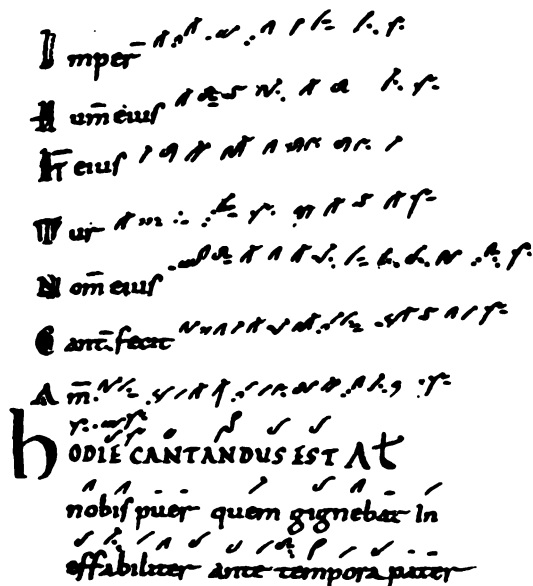 Imper̄
Hum̄ eius
eius
Tur
Nom̄ eius
Cant̄. fecit
Am̄.
hODIE CANTANDUS EST At
nobis puer quem gignebat In
effabiliter ante tempora pater